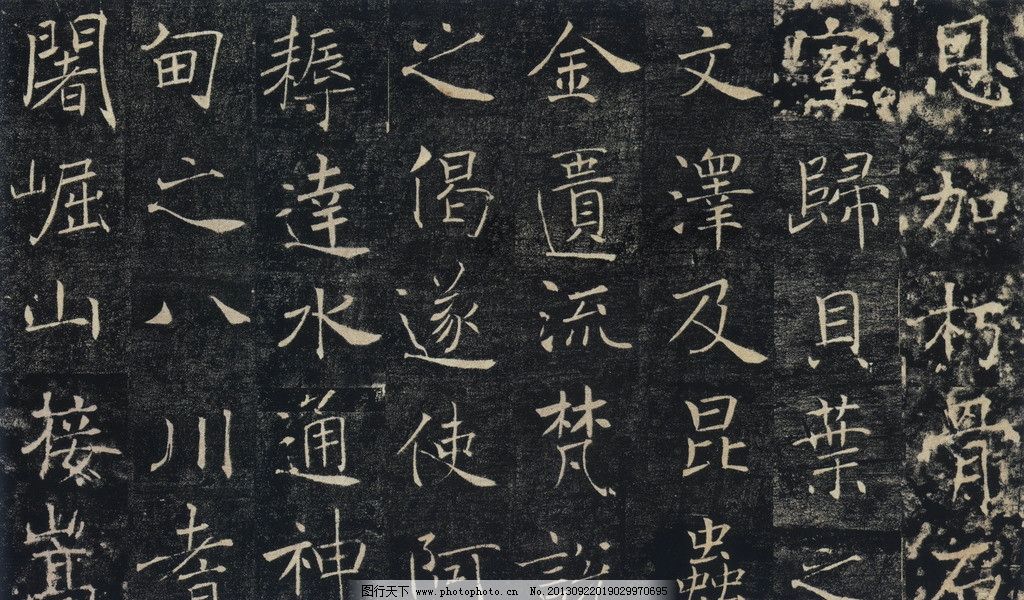 恩加朽骨石
室歸貝葉之
文澤及昆蟲
金匱流梵說
之偈遂使阿
耨達水通神
甸之八川耆
闍崛山接嵩
图行天下 www.photophoto.cn No.20130922019029970695